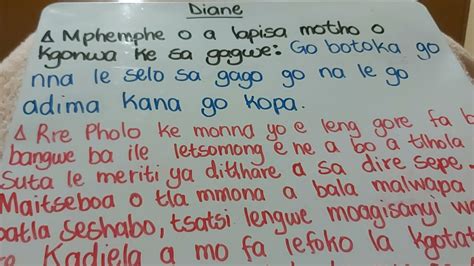 Diane
Δ Mphemphe o a lapisa motho o
kgonwa ke sa gagwe: Go botoka go
nna le selo sa gago go na le go
adima kana go kopa.
Δ Rre Pholo ke monna yo e leng gore fa b
bangwe ba ile letsomong e ne a bo a tlhola
Suta le meriti ya ditlhare a sa dire sepe.
Maitseboa o tla mmona a bala malwapa
batla seshabo, tsatsi lengwe moagisanyi wa
Kadiela a mo fa lefoko la kgotat